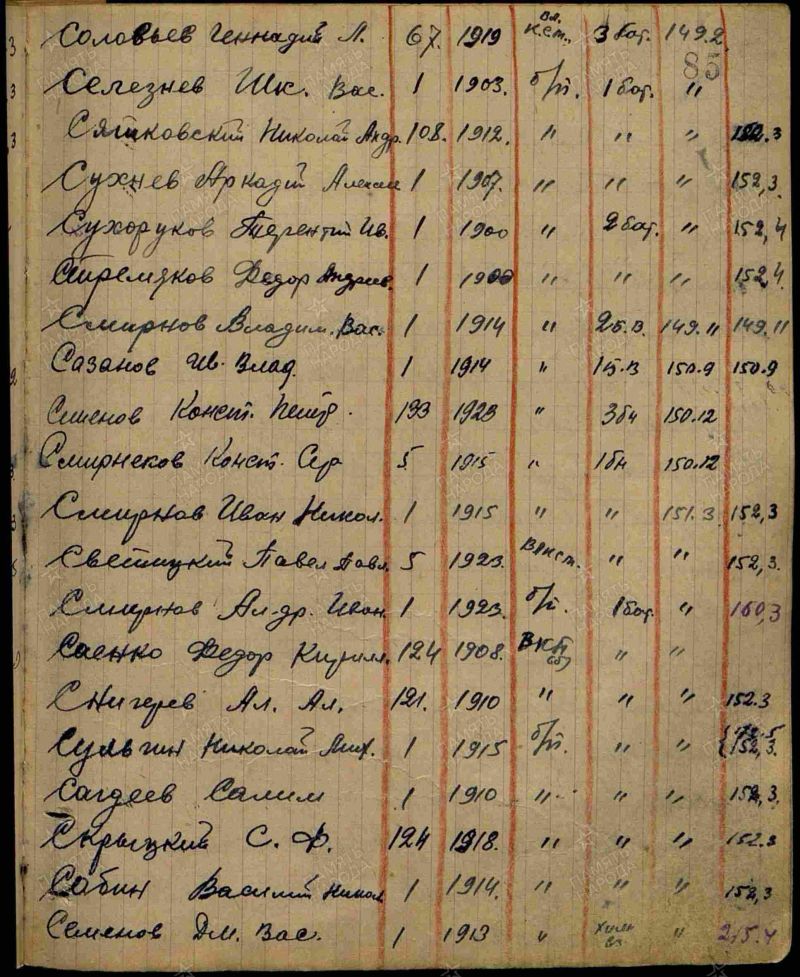 Соловьев Геннадий Л. 67. 1919 Вл. К.С.М. 3 бат. 149.2
85
Селезнев Вас. 1 1903. б/п. 1 бат. "
Николай Андр. 108. 1912. " " " 152.3
Сухнев Аркадий 1 1907. " " " 152,3.
Сухоруков Терентий Ив. 1 1900 " 2 бат. " 152,4
Федор Андреев. 1 1900 " " " 152,4.
Смирнов Владим. Вас. 1 1914 " 2б.в. 149.11 149.11
Сазанов Ив. Влад. 1 1914 " 1б.в 150.9 150.9
Семенов Конст. Петр. 193 1923 " 3бн 150.12
Смирнсков Конст. Сер 5 1915 " 1бн 150.12
Смирнов Иван Никол. 1 1915 " " 151.3 152,3
Светицкий Павел Павл. 5 1923. " " 152,3.
Смирнов Ал-др. Иван 1 1923. б/п. 1 бат. " 160,3
Саенко Федор Кирилл. 124 1908. ВКП " "
Снигерев Ал. Ал. 121. 1910 " " " 152.3
Сульгин Николай Мих. 1 1915 б/п. " " 152,3.
Сагдеев Салим 1 1910 " " " 152,3.
Скрыцкий С. Ф. 124 1918. " " " 152.3
Сабин Василий Никол 1 1914. " " " 152,3
Семенов Дм. Вас. 1 1913 " хим вз " 215.4